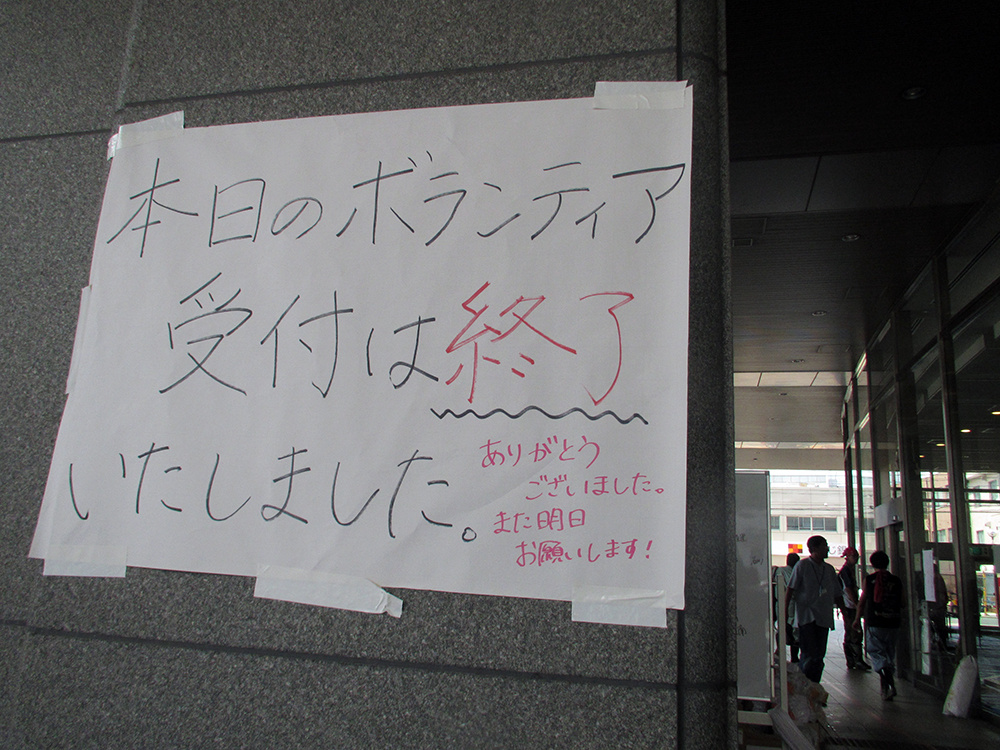 本日のボランティア
受付は終了
いたしました。
ありがとう
ございました。
また明日
お願いします!